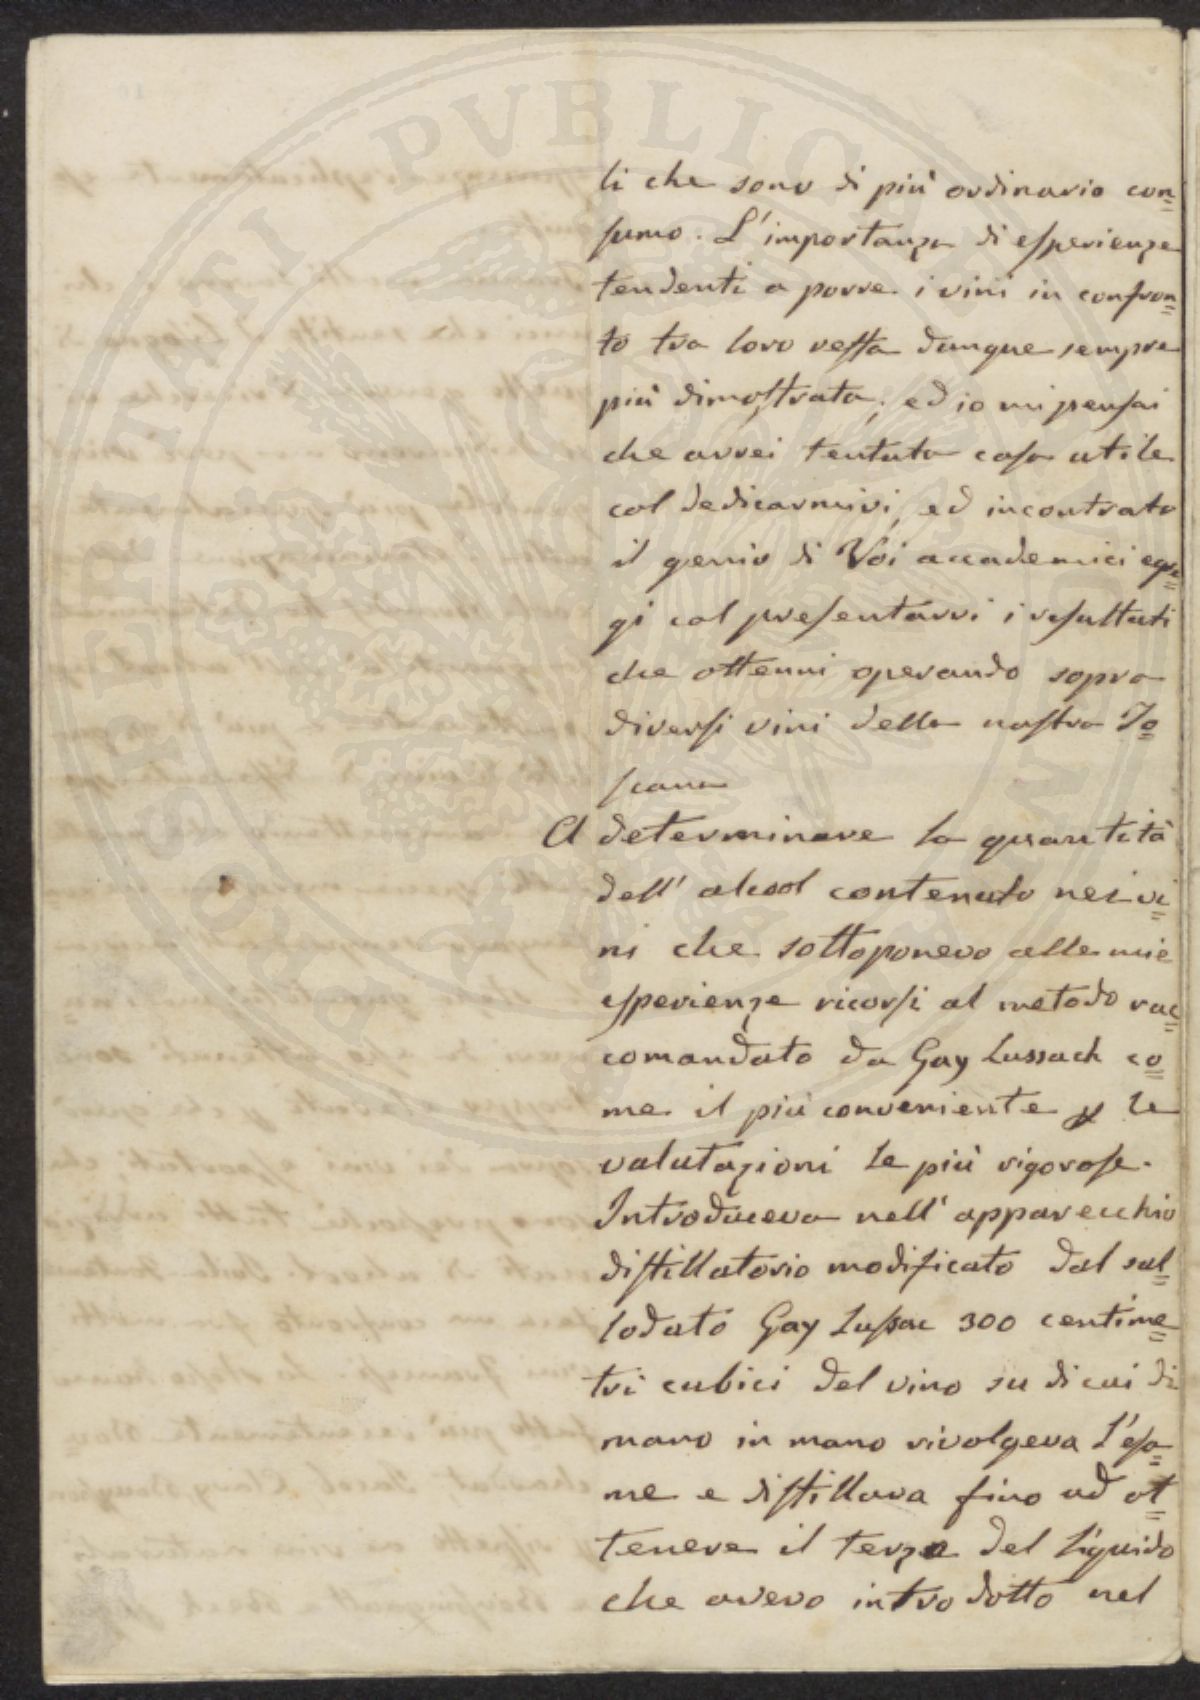 PROSPERITATI PVBLICAE
li che sono di più ordinario con=
sumo. L'importanza di esperienze
tendenti a porre i vini in confron=
to tra loro resta dunque sempre
più dimostrata; ed io mi pensai
che avrei tentato cosa utile
col dedicarmivi, ed incontrato
il genio di Voi accademici egre=
gi col presentarvi i resultati
che ottenni operando sopra
diversi vini della nostra To=
scana
A determinare la quantità
dell' alcool contenuto nei vi=
ni che sottoponevo alle mie
esperienze ricorsi al metodo rac=
comandato da Gay Lussach co=
me il più conveniente p le
valutazioni le più rigorose.
Introduceva nell' apparecchio
distillatorio modificato dal sul=
lodato Gay Lussac 300 centime=
tri cubici del vino su di cui di
mano in mano rivolgeva l'esa=
me e distillava fino ad ot=
tenere il terzo del liquido
che avevo introdotto nel